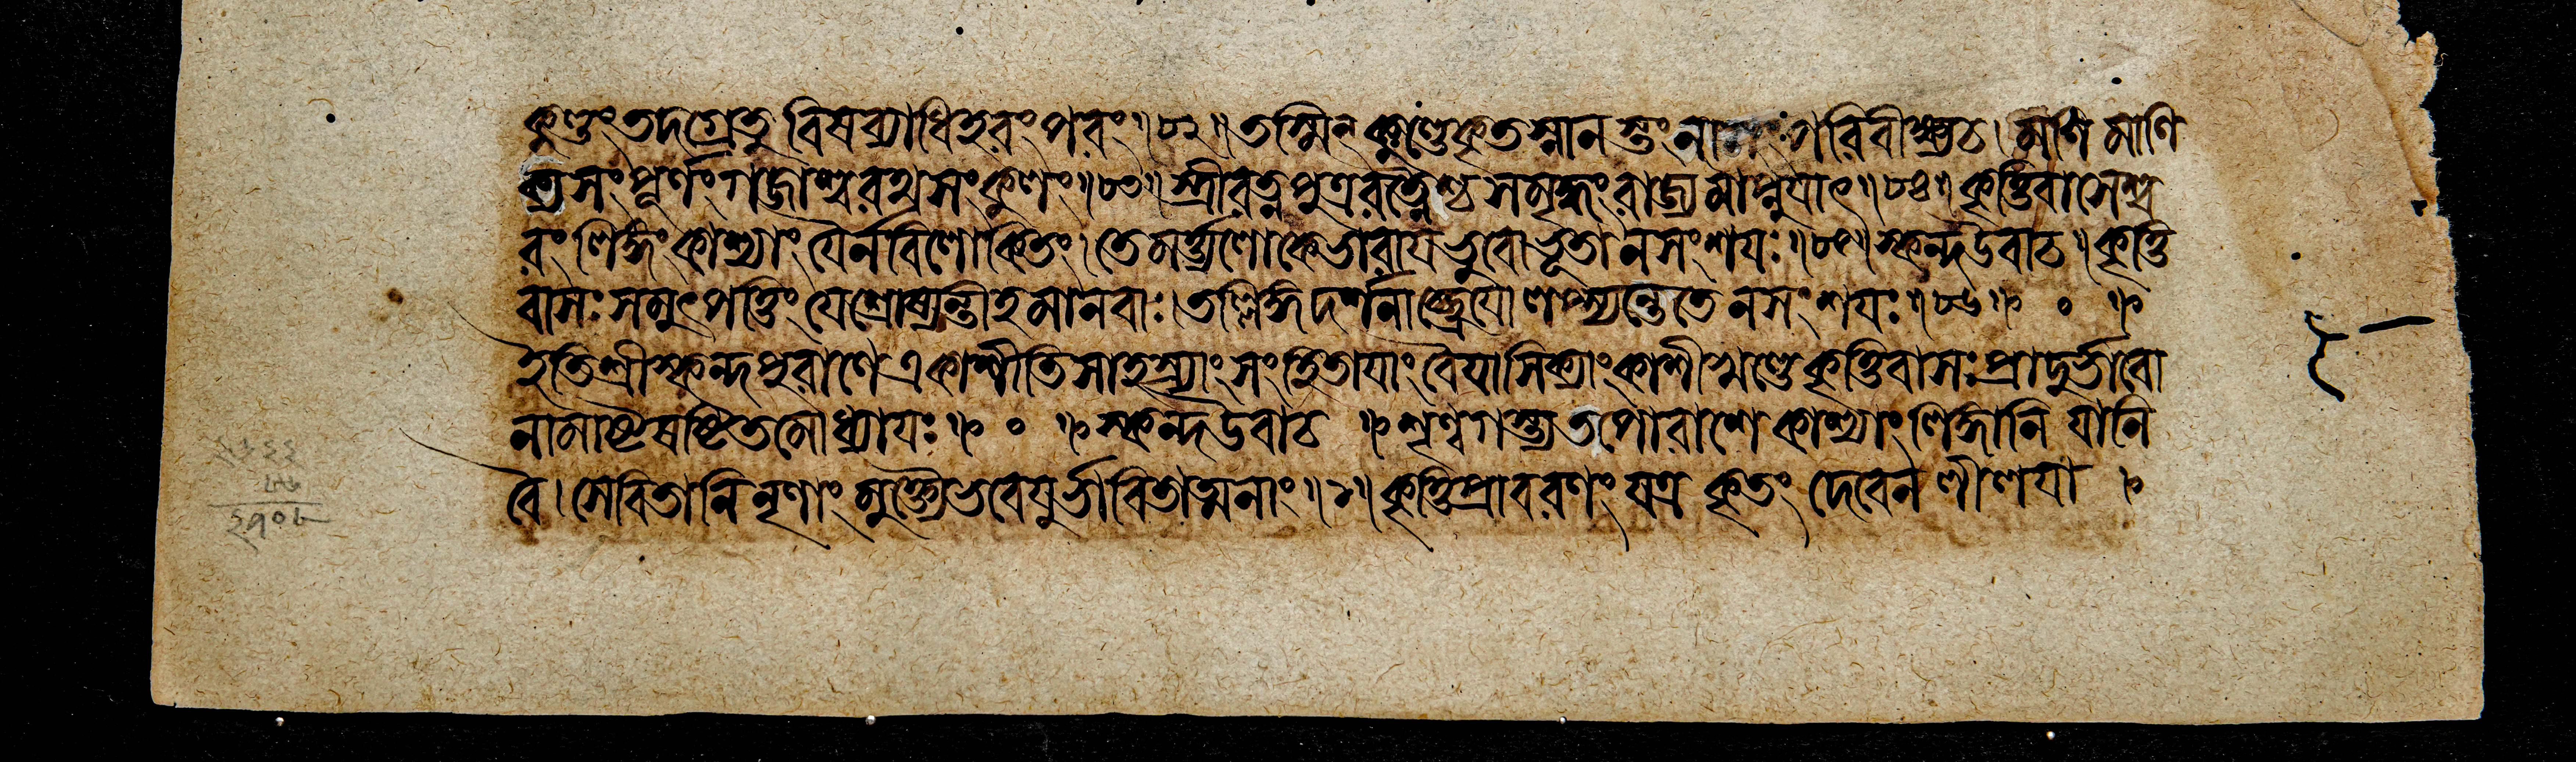 কুণ্ডং তদগ্রে তু বিষব্যাধিহরং পরং ॥ ৮২ ॥ তস্মিন্ কুণ্ডে কৃতস্নানস্তং নাগং পরিবীক্ষ্য চ । মণিমাণি
ক্যসংপূর্ণং গজাশ্বরথসংকুলং ॥ ৮৩ ॥ স্ত্রীরত্নপুত্ররত্নৈশ্চ সমৃদ্ধং রাজ্যমাপ্নুয়াৎ ॥ ৮৪ ॥ কৃত্তিবাসেশ্ব
রং লিঙ্গং কাশ্যাং যৈর্ন বিলোকিতং । তে মর্ত্ত্যলোকে ভারায় ভুবো ভূতা ন সংশয়ঃ ॥ ৮৫ ॥ স্কন্দ উবাচ ॥ কৃত্তি
বাসঃ সমুৎপত্তিং যে শ্রোষ্যন্তীহ মানবাঃ । তল্লিঙ্গদর্শনাচ্ছ্রেয়ো লপ্স্যন্তে তে ন সংশয়ঃ ॥ ৮৬ ॥ ০ ॥
ইতি শ্রীস্কন্দপুরাণে একাশীতিসাহস্র্যাং সংহিতায়াং বৈয়াসিক্যাং কাশীখণ্ডে কৃত্তিবাসঃ প্রাদুর্ভাবো
নামাষ্টষষ্টিতমোধ্যায়ঃ ॥ ০ ॥ স্কন্দ উবাচ ॥ শৃণ্বগস্ত্য তপোরাশে কাশ্যাং লিঙ্গানি যানি
বৈ । সেবিতানি নৃণাং মুক্ত্যৈ ভবেয়ুর্ভাবিতাত্মনাং ॥ ১ ॥ কৃত্তিপ্রাবরণং যত্র কৃতং দেবেন লীলয়া ॥